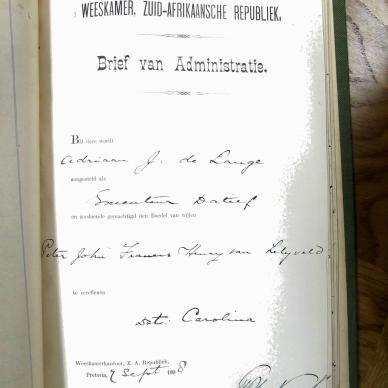 WEESKAMER, ZUID-AFRIKAANSCHE REPUBLIEK.
Brief van Administratie.
Bij deze wordt
Adriaan J. de Lange
aangesteld als
Executeur Datief
en zoodoende gemachtigd den Boedel van wijlen
Peter John Francis Henry van Lelyveld
te vereffenen
Dst: Carolina
Weeskamerkantoor, Z. A. Republiek,
Pretoria, 7 Sept 1898